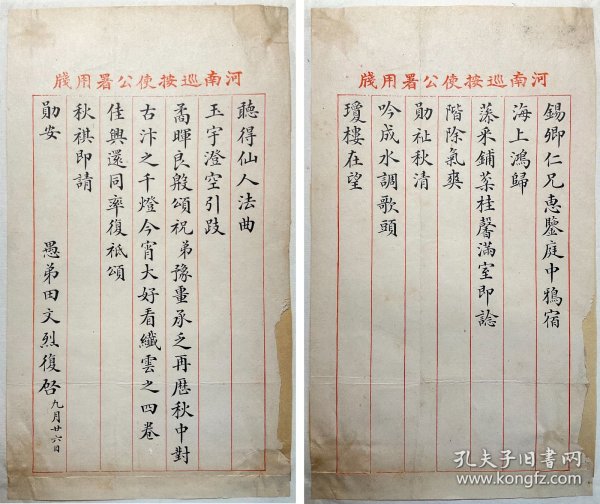 河南巡按使公署用牋
錫卿仁兄惠鑒庭中鴉宿
海上鴻歸
采鋪棻桂馨滿室即諗
階除氣爽
勛祉秋清
吟成水調歌頭
瓊樓在望
河南巡按使公署用牋
聽得仙人法曲
玉宇澄空引跂
矞暉良殷頌祝弟豫畺承乏再歷秋中對
古汴之千燈今宵大好看纖雲之四卷
佳興還同率復祗頌
秋祺即請
勛安 愚弟田文烈復啓九月廿六日
孔夫子旧书网
www.kongfz.com